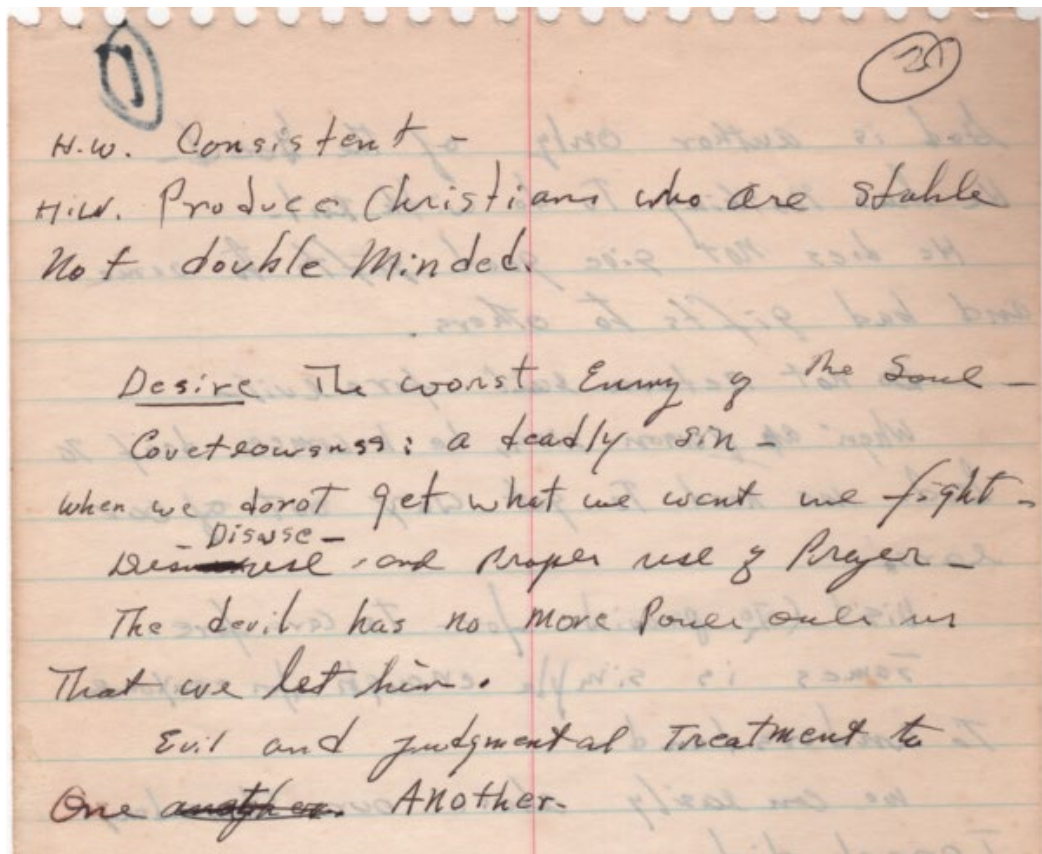 H.W. Consistent -
H.W. Produce Christians who are stable
Not double Minded.
Desire The worst Enmy of the Soul -
Coveteowsnss: a deadly sin -
when we donot get what we want we fight -
Disuse -
and Proper use of Prayer -
The devil has no more Power over us
That we let him.
Evil and judgmental Treatment to
One another. Another.